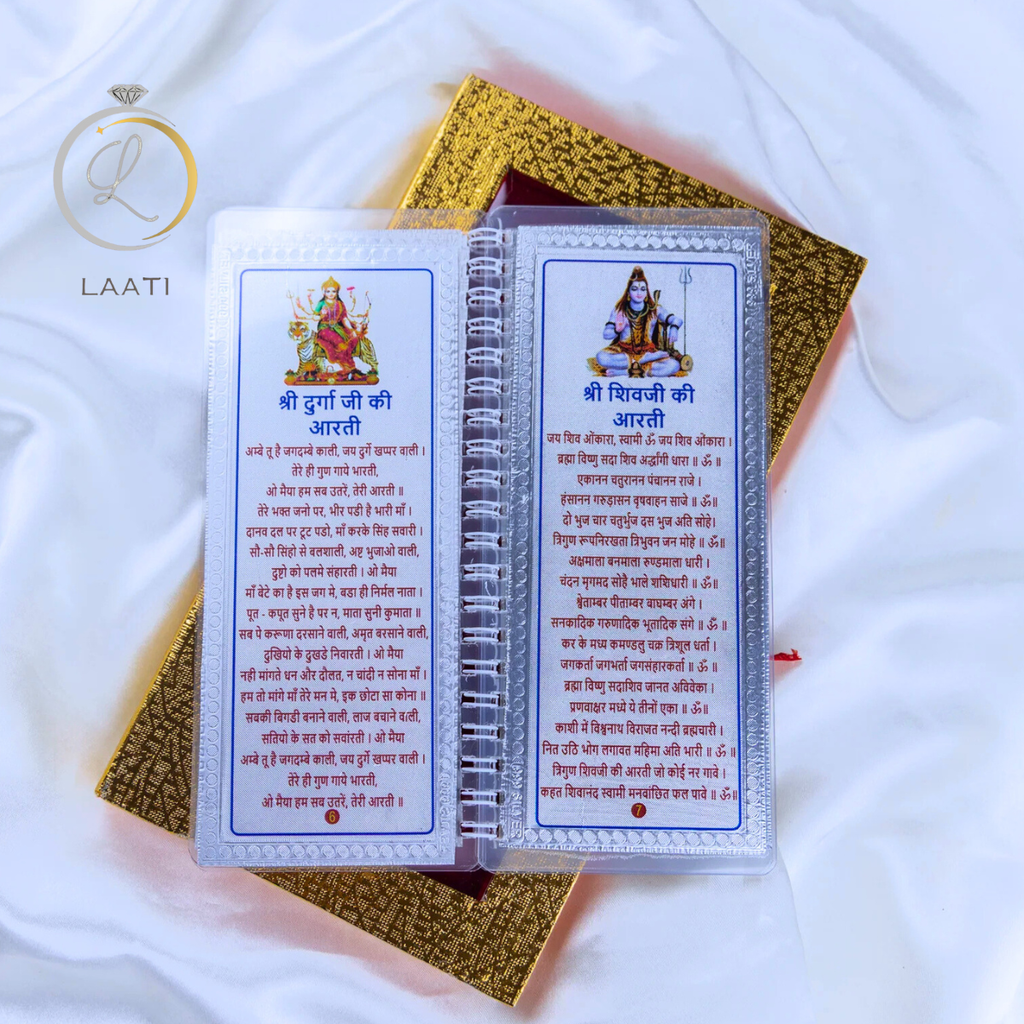 LAATI
श्री दुर्गा जी की
आरती
अम्बे तू है जगदम्बे काली, जय दुर्गे खप्पर वाली ।
तेरे ही गुण गाये भारती,
ओ मैया हम सब उतरें, तेरी आरती ॥
तेरे भक्त जनो पर, भीर पडी है भारी माँ ।
दानव दल पर टूट पडो, माँ करके सिंह सवारी ।
सौ-सौ सिंहो से बलशाली, अष्ट भुजाओ वाली,
दुष्टो को पलमे संहारती । ओ मैया
माँ बेटे का है इस जग मे, बडा ही निर्मल नाता ।
पूत - कपूत सुने है पर न, माता सुनी कुमाता ॥
सब पे करूणा दरसाने वाली, अमृत बरसाने वाली,
दुखियो के दुखडे निवारती । ओ मैया
नही मांगते धन और दौलत, न चांदी न सोना माँ ।
हम तो मांगे माँ तेरे मन मे, इक छोटा सा कोना ॥
सबकी बिगडी बनाने वाली, लाज बचाने वाली,
सतियो के सत को सवांरती । ओ मैया
अम्बे तू है जगदम्बे काली, जय दुर्गे खप्पर वाली ।
तेरे ही गुण गाये भारती,
ओ मैया हम सब उतरें, तेरी आरती ॥
6
श्री शिवजी की
आरती
जय शिव ओंकारा, स्वामी ॐ जय शिव ओंकारा ।
ब्रह्मा विष्णु सदा शिव अर्द्धांगी धारा ॥ ॐ ॥
एकानन चतुरानन पंचानन राजे ।
हंसानन गरुड़ासन वृषवाहन साजे ॥ ॐ॥
दो भुज चार चतुर्भुज दस भुज अति सोहे।
त्रिगुण रूपनिरखता त्रिभुवन जन मोहे ॥ ॐ॥
अक्षमाला बनमाला रुण्डमाला धारी ।
चंदन मृगमद सोहै भाले शशिधारी ॥ ॐ॥
श्वेताम्बर पीताम्बर बाघम्बर अंगे ।
सनकादिक गरुणादिक भूतादिक संगे ॥ ॐ ॥
कर के मध्य कमण्डलु चक्र त्रिशूल धर्ता ।
जगकर्ता जगभर्ता जगसंहारकर्ता ॥ ॐ ॥
ब्रह्मा विष्णु सदाशिव जानत अविवेका ।
प्रणवाक्षर मध्ये ये तीनों एका ॥ ॐ॥
काशी में विश्वनाथ विराजत नन्दी ब्रह्मचारी ।
नित उठि भोग लगावत महिमा अति भारी ॥ ॐ ॥
त्रिगुण शिवजी की आरती जो कोई नर गावे ।
कहत शिवानंद स्वामी मनवांछित फल पावे ॥ ॐ॥
7
999 SILVER